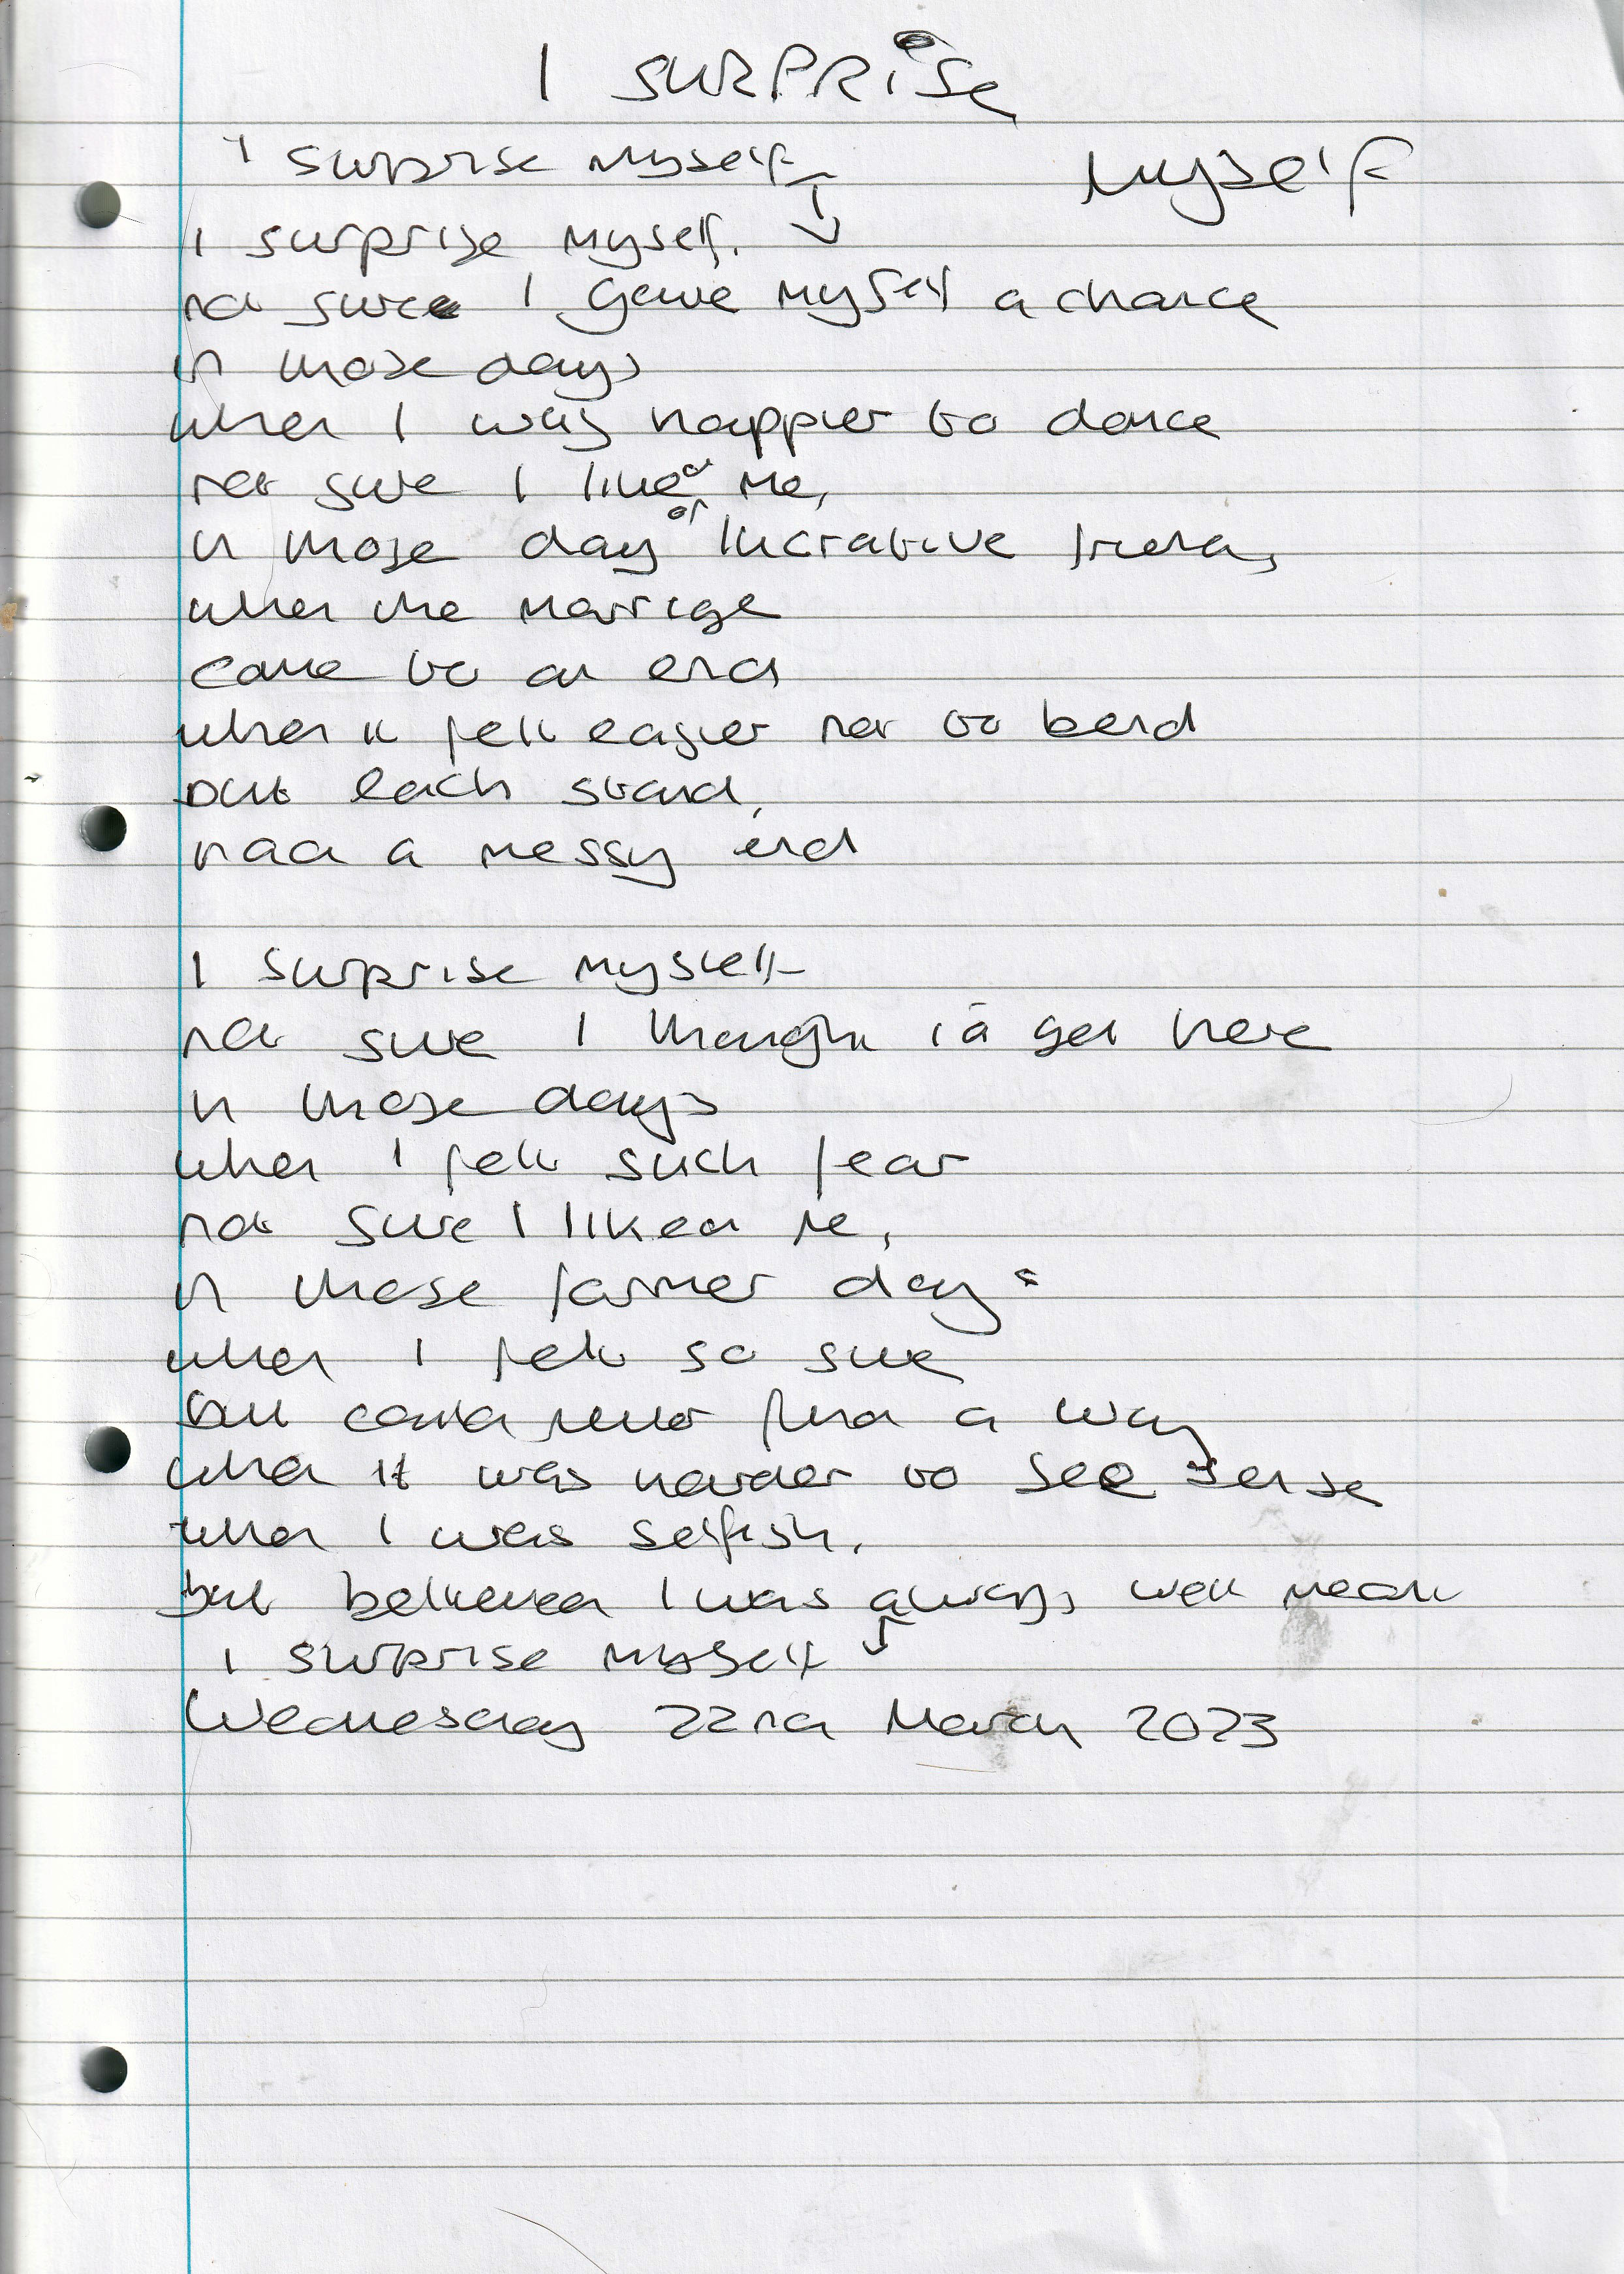 I SURPRISE
Myself
I surprise myself
I surprise myself.
not sure I gave myself a chance
in those days
when I was happier to dance
not sure I liked me,
in those day of lucrative trend,
when the marrige
came to an end
when it felt easier not to bend
but each strand,
had a messy end
I surprise myself
not sure I thought i'd get here
in those days
when I felt such fear
not sure I liked me,
in those former days
when I felt so sure
but could never find a way
when it was harder to see sense
when I was selfish,
but believed I was always well meant
I surprise myself
Wednesday 22nd March 2023